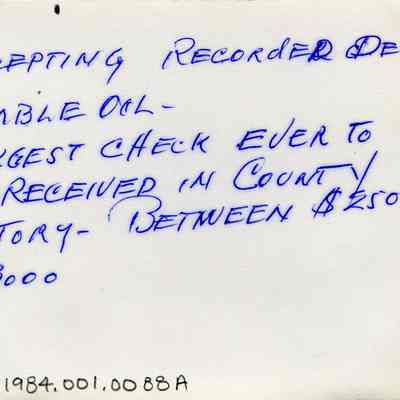 EPTING RECORDED DE
MBLE OIL-
GEST CHECK EVER TO
RECEIVED IN COUNTY
TORY- BETWEEN $250
000
1984.001.0088A